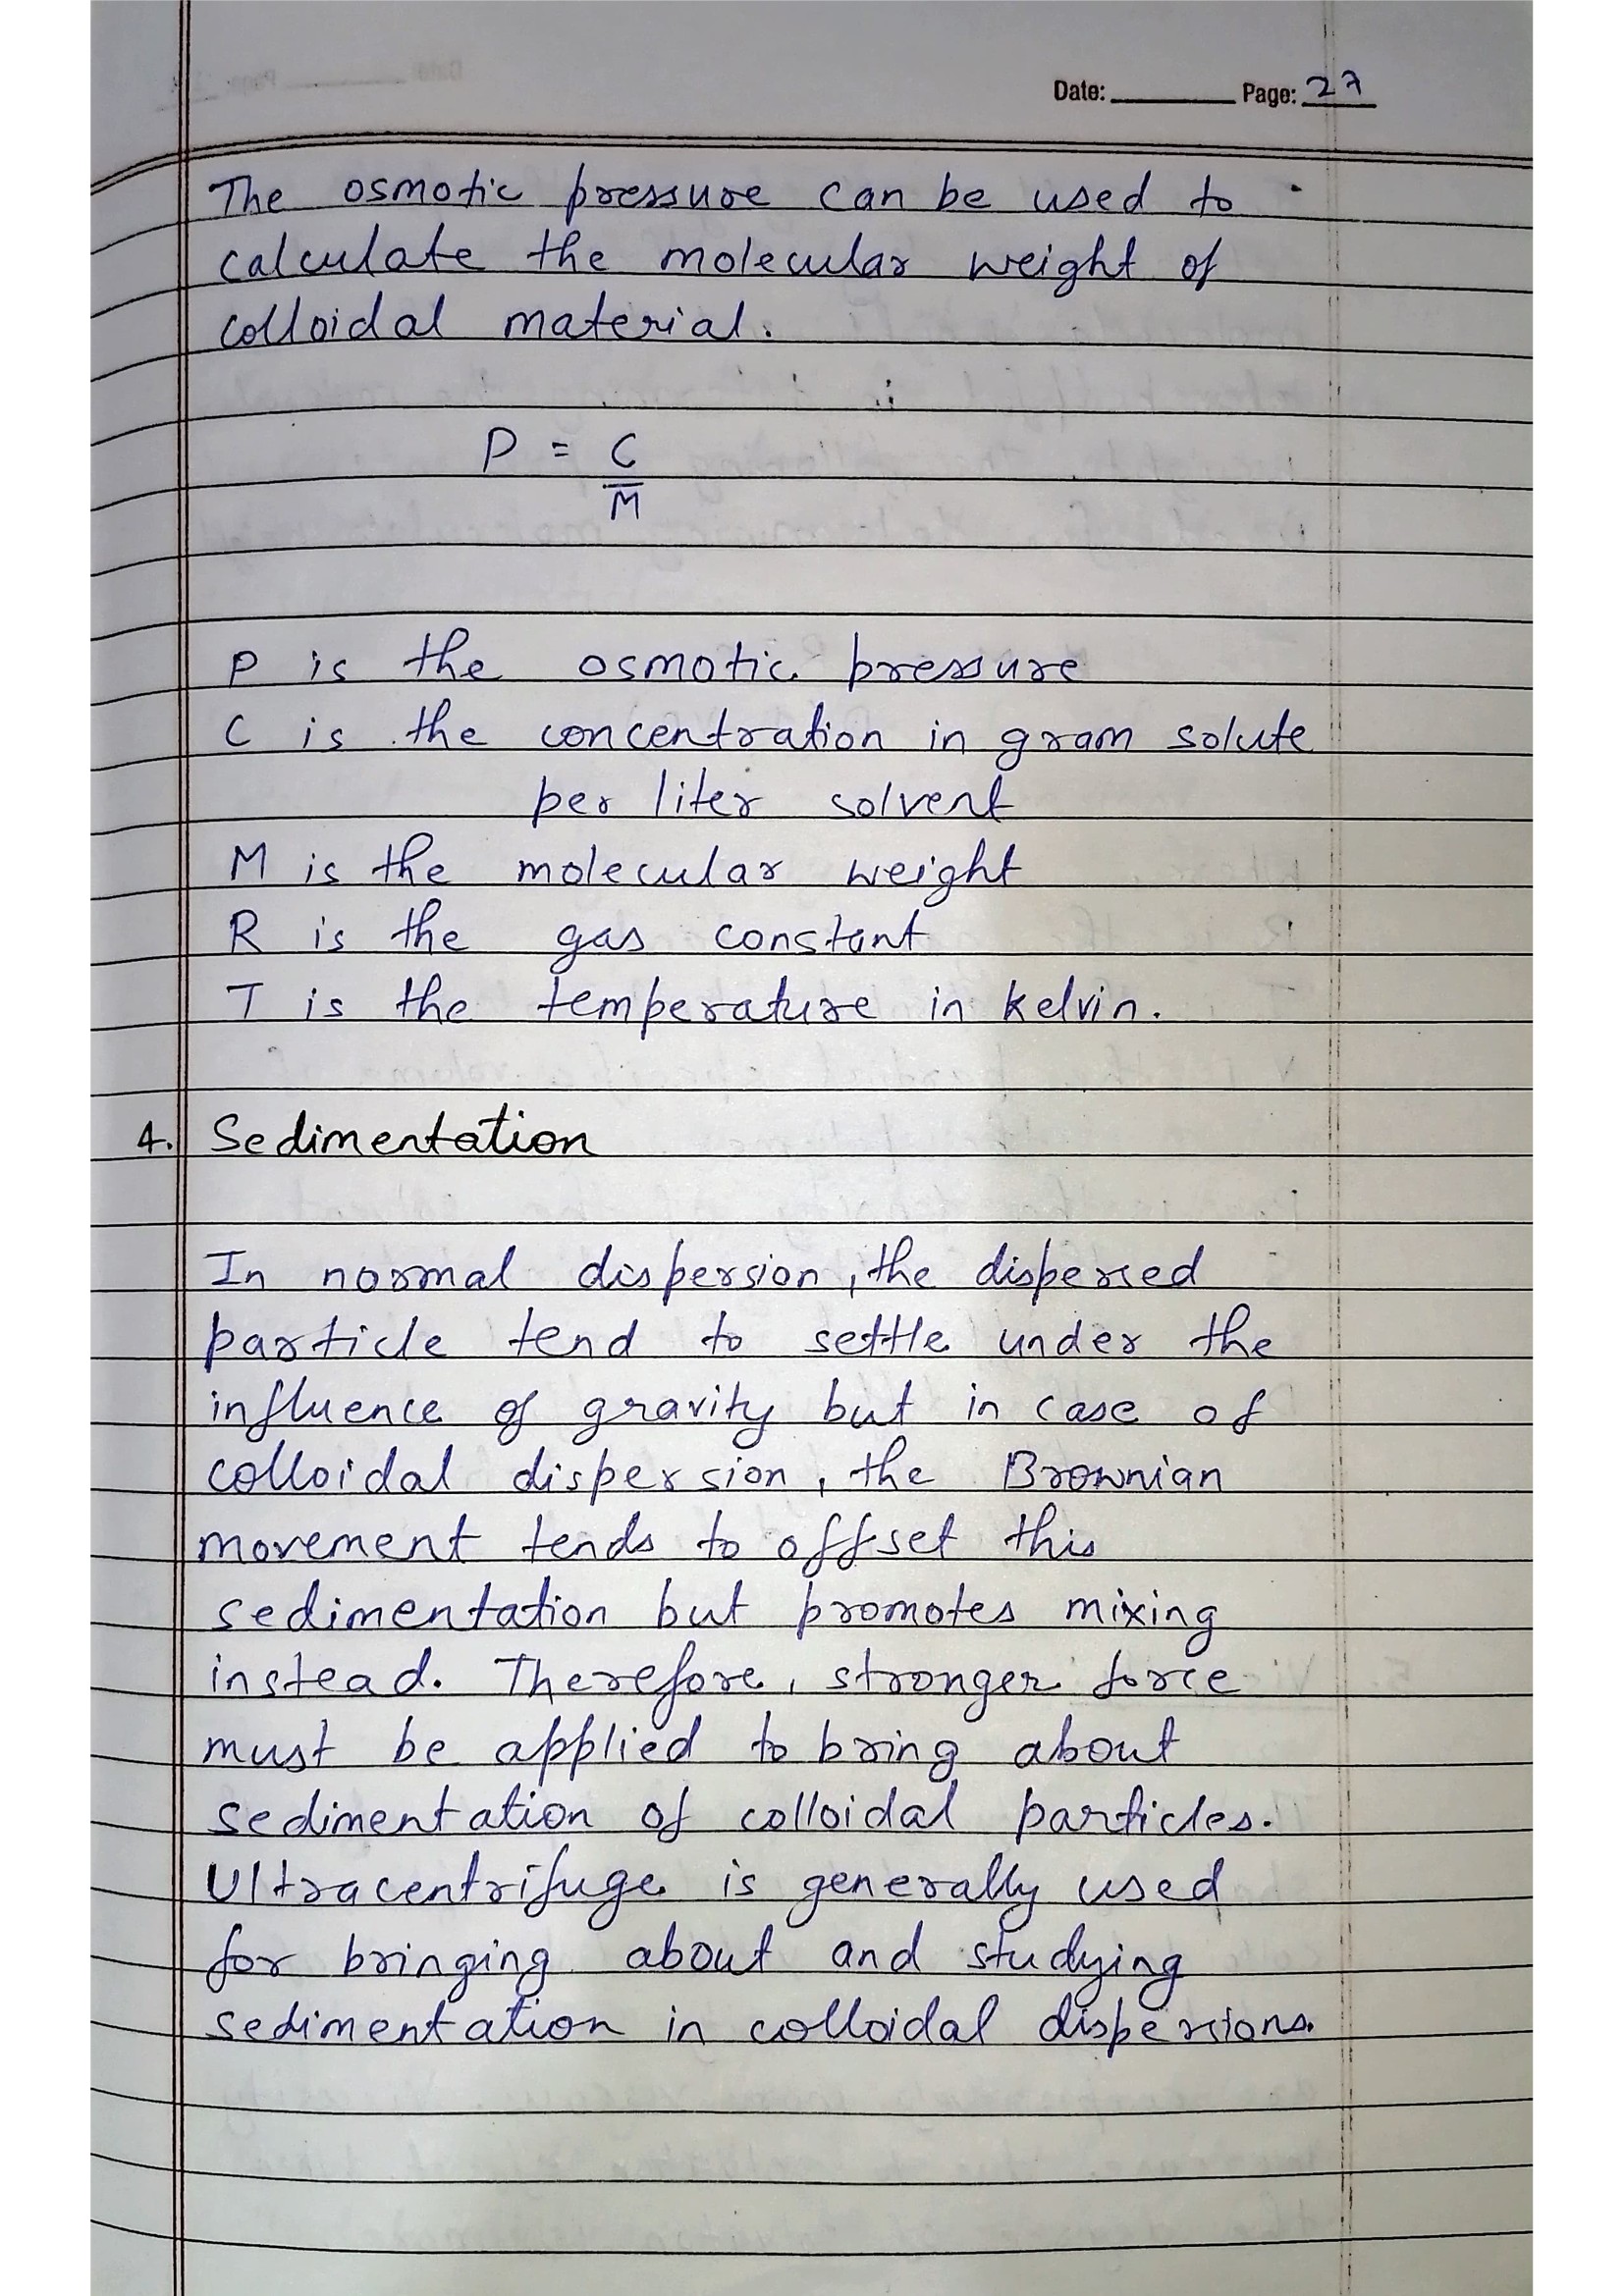 Date: Page: 27
The osmotic pressure can be used to
calculate the molecular weight of
colloidal material.
P = C
M
P is the osmotic pressure
C is the concentration in gram solute
per liter solvent
M is the molecular weight
R is the gas constant
T is the temperature in kelvin.
4. Sedimentation
In normal dispersion, the dispersed
particle tend to settle under the
influence of gravity but in case of
colloidal dispersion, the Brownian
movement tends to offset this
sedimentation but promotes mixing
instead. Therefore, stronger force
must be applied to bring about
sedimentation of colloidal particles.
Ultracentrifuge is generally used
for bringing about and studying
sedimentation in colloidal dispersions.